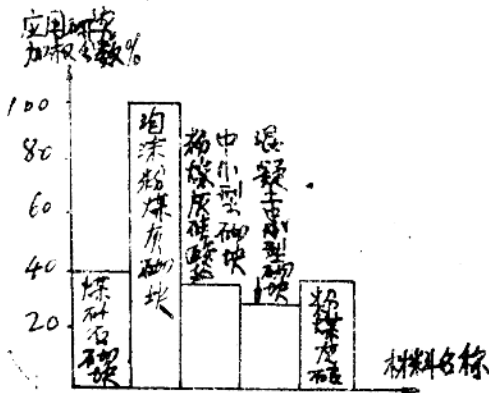 应用研究
加权分数%
100
80
60
40
20
煤矸石砌块
泡沫粉煤灰砌块
粉煤灰硅酸盐
中小型砌块
混凝土小型砌块
粉煤灰砖
材料名称